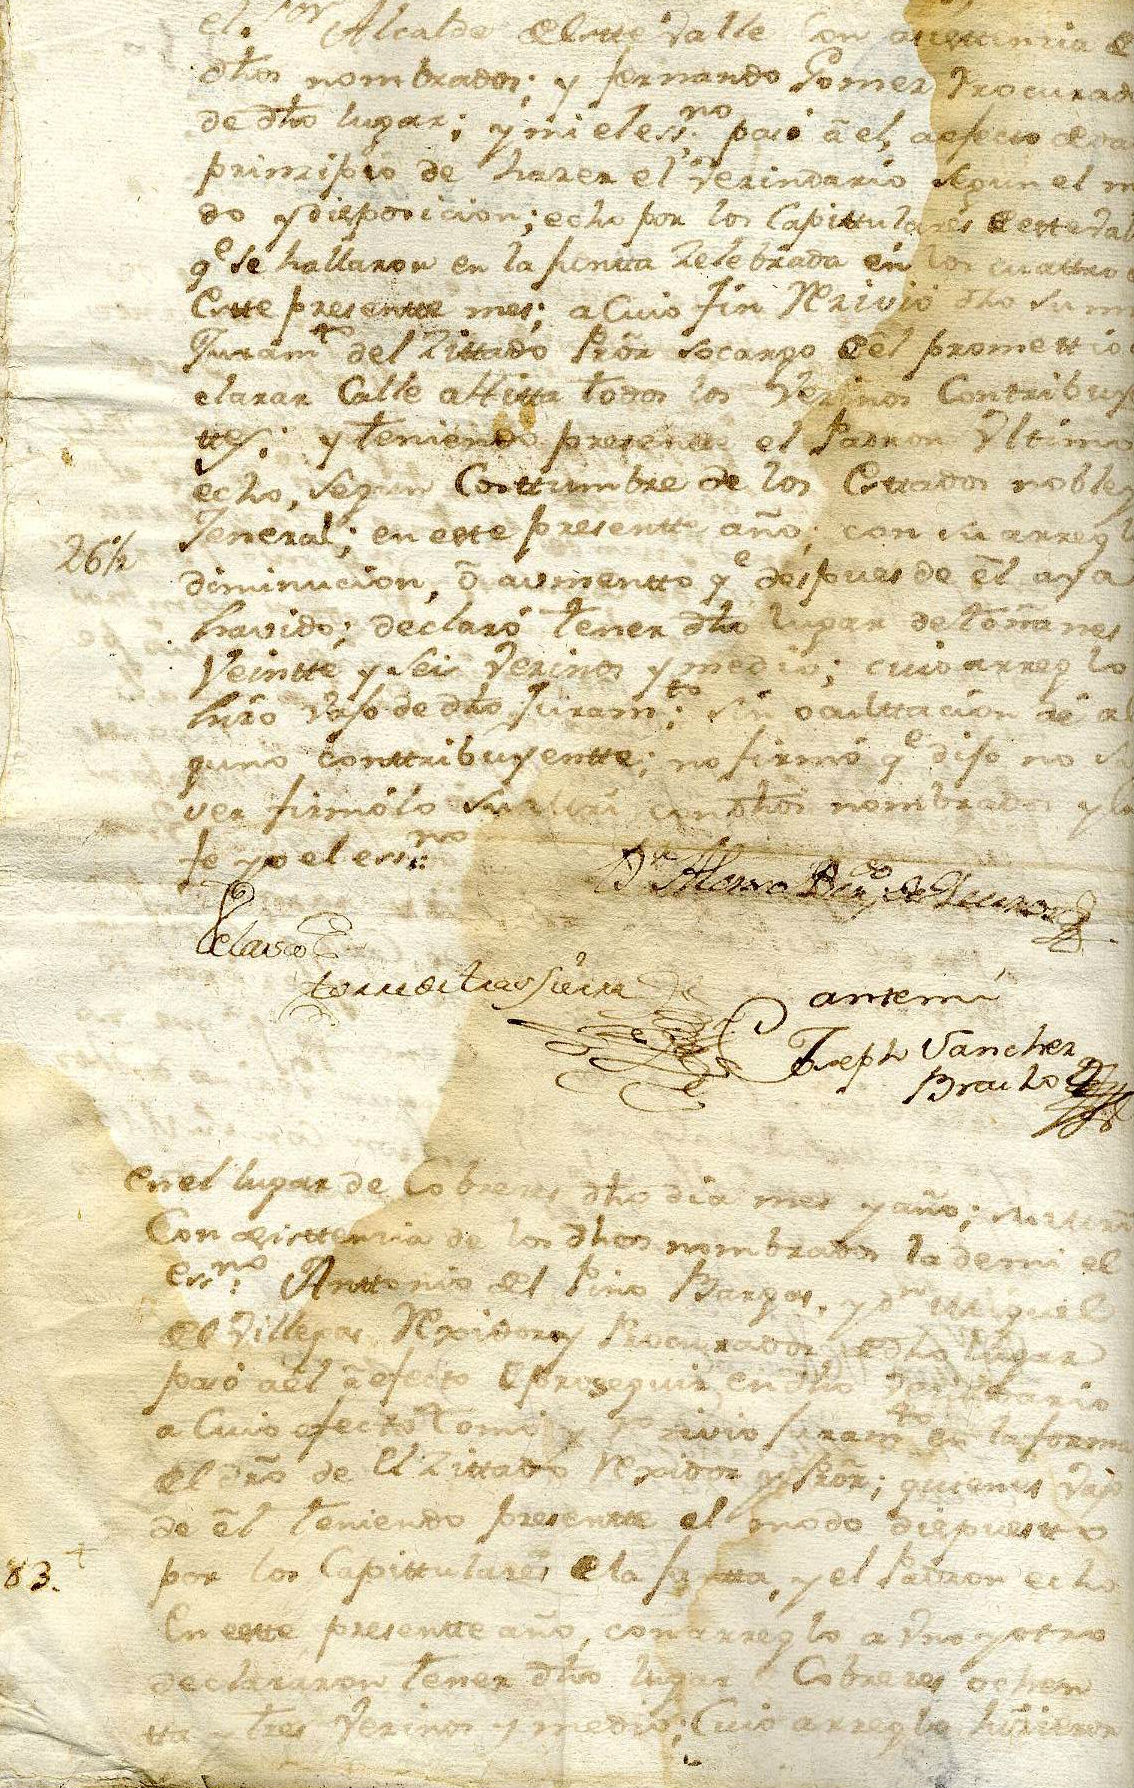 el s.or Alcalde de este Valle con asistencia de
dhos nombrados; y fernando Gomez Procurad
de dho lugar; y mi el ess.no pasó á el, a efecto de
prinzipio de hazer el Vezindario segun el m
do y disposicion; echo por los Capittulares de este Val
q.e se hallaron en la Juntta Zelebrada en los cuattro
Este presentte mes; a Cuio fin Rezivio dho su m
Juram.to del Zittado Pror so cargo de el promettió
clarar Calle a Hitta todos los Vezinos Contribuy
ttes; y teniendo presentte el Padron Ultimo
echo, segun Costtumbre de los Esttados noble y
Jeneral; en este presentte año; con su arregl
26 1/2
diminucion, ó aumentto q.e despues de el aya
havido; declaró tener dho lugar de toñanes
Veintte y seis Vezinos y medio; cuio arreglo
hizo vajo de dho Juram.to; sin ocultacion de al
guno conttribuyentte; no firmó q.e dijo no
ver firmólo su Mrd con dhos nombrados y
fe yo el ess.no
D.n Alonso
Velasco
torre de trassierra
ante mi
Joseph Sanchez
Bracho
en el lugar de Cobreces dho dia mes y año; su Mrd
Con asisttenzia de los dhos nombrados la de mi el
ess.no Anttonio del Pino Bargas, y d.n Miguel
de Villegas Rexidor y Procurador de dho lugar
pasó a él á efecto de proseguir en dho Vezindario
a Cuio efectto tomó y rezivio Juram.to en la forma
de dro de el Zittado Rexidor y Pror; quienes vajo
de él teniendo presentte el modo dispuestto
83.
por los Capittulares de la Juntta, y el Padron echo
En este presentte año, con arreglo a Uno y otro
declararon tener dho lugar Cobreces ochen
tta y tres Vezinos y medio; Cuio arreglo hizieron